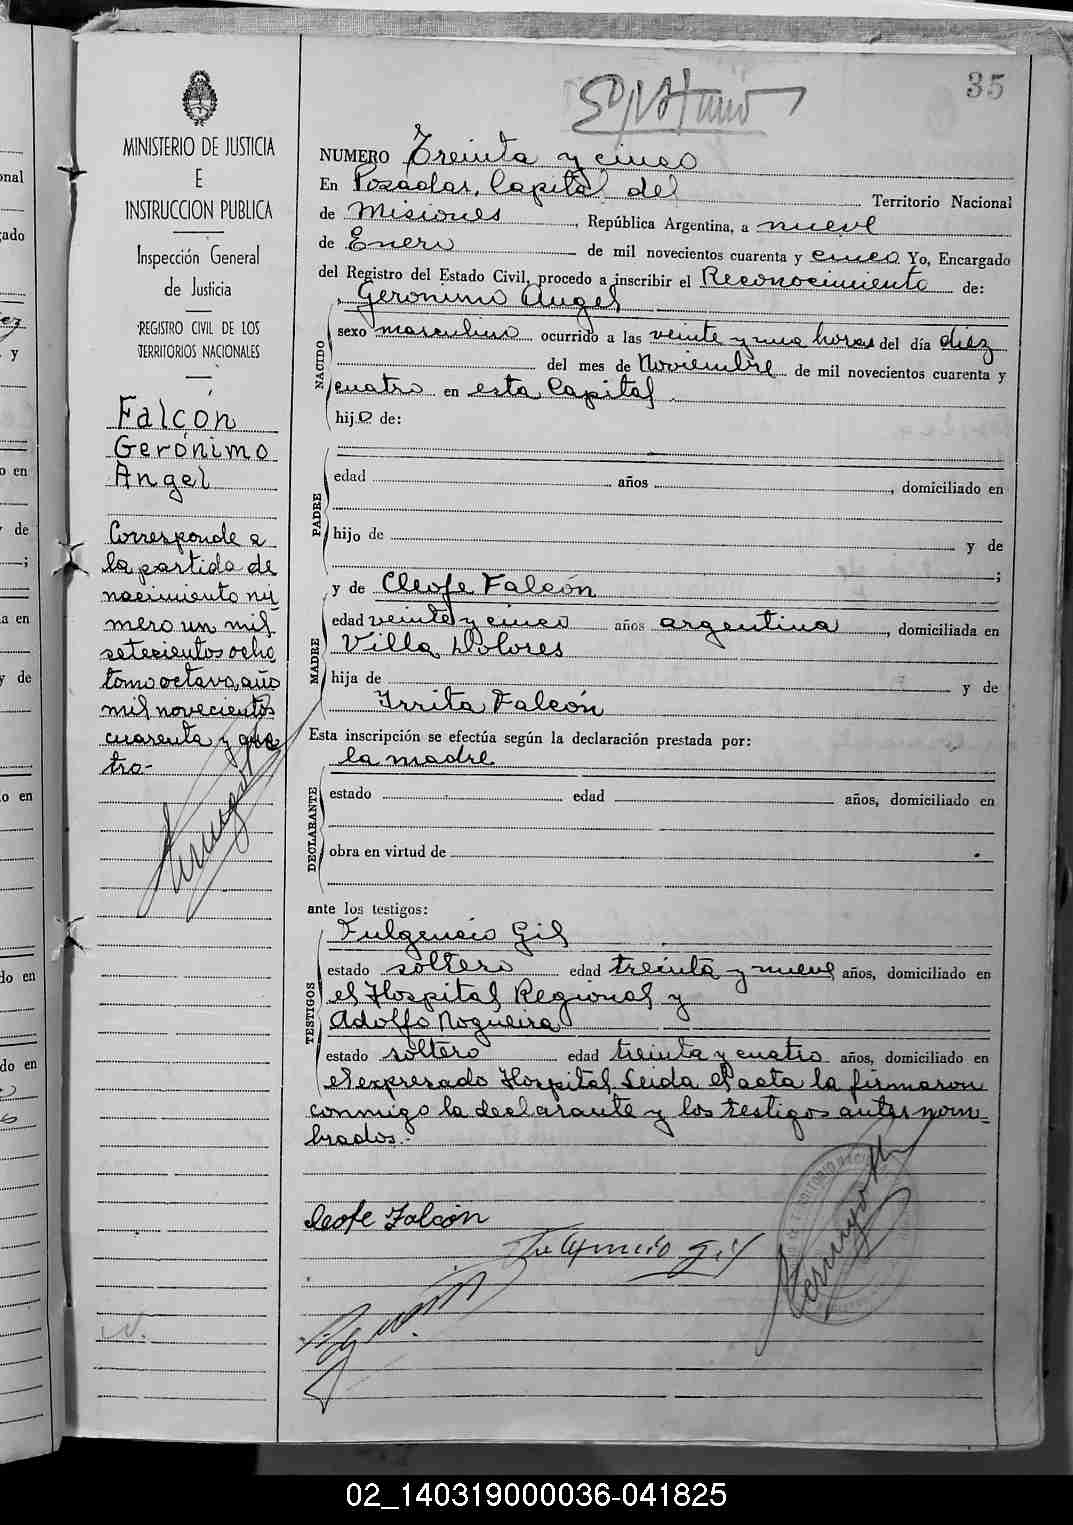 35
NUMERO Treinta y cinco
En Posadas, Capital del Territorio Nacional
de Misiones, República Argentina, a nueve
de Enero de mil novecientos cuarenta y cinco Yo, Encargado
del Registro del Estado Civil, procedo a inscribir el Reconocimiento de:
Gerónimo Angel
NACIDO
sexo masculino ocurrido a las veinte y una horas del día diez
del mes de Noviembre de mil novecientos cuarenta y
cuatro en esta Capital
hijo de:
PADRE
edad años , domiciliado en
hijo de y de
;
MADRE
y de Cleofe Falcón
edad veinte y cinco años argentina, domiciliada en
Villa Dolores
hija de y de
Irrita Falcón
Esta inscripción se efectúa según la declaración prestada por:
la madre
DECLARANTE
estado edad años, domiciliado en
obra en virtud de .
ante los testigos:
TESTIGOS
Fulgencio Gil
estado soltero edad treinta y nueve años, domiciliado en
el Hospital Regional y
Adolfo Nogueira
estado soltero edad treinta y cuatro años, domiciliado en
el expresado Hospital Leida el acta la firmaron
conmigo la declarante y los testigos antes nom-
brados.-
Cleofe Falcón
Fulgencio Gil
MINISTERIO DE JUSTICIA
E
INSTRUCCION PUBLICA
Inspección General
de Justicia
REGISTRO CIVIL DE LOS
TERRITORIOS NACIONALES
Falcón
Gerónimo
Angel
Corresponde a
la partida de
nacimiento nú
mero un mil
setecientos ocho
tomo octavo, año
mil novecientos
cuarenta y cua
tro-
02_140319000036-041825